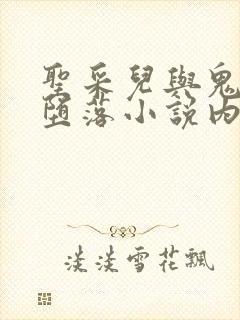 聖采兒與鬼
墮落小說內
淡淡雪花飄